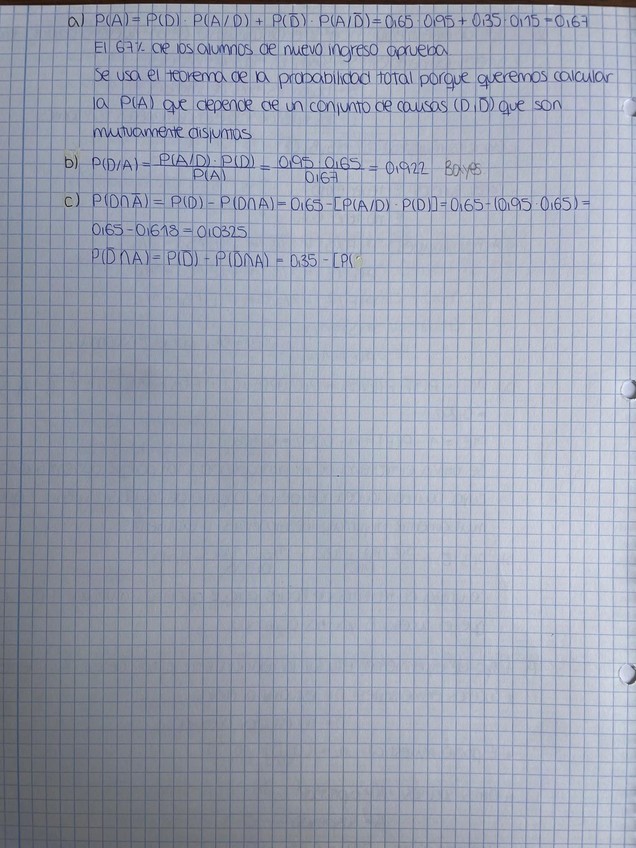 a) P(A) = P(D) · P(A/D) + P(D̄) · P(A/D̄) = 0,65 · 0,95 + 0,35 · 0,15 = 0,67
El 67% de los alumnos de nuevo ingreso aprueba.
Se usa el teorema de la probabilidad total porque queremos calcular
la P(A) que depende de un conjunto de causas (D, D̄) que son
mutuamente disjuntas
b) P(D/A) = P(A/D) · P(D) / P(A) = 0,95 · 0,65 / 0,67 = 0,922 Bayes
c) P(D∩Ā) = P(D) - P(D∩A) = 0,65 - [P(A/D) · P(D)] = 0,65 - (0,95 · 0,65) =
0,65 - 0,618 = 0,0325
P(D̄∩A) = P(D̄) - P(D̄∩A) = 0,35 - [P(